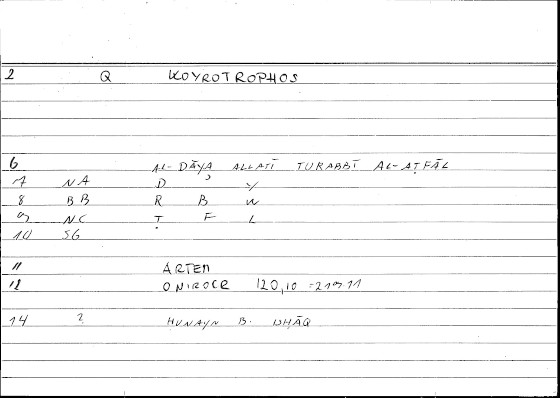 2 Q KOYROTROPHOS
6 AL-DĀYA ALLATĪ TURABBĪ AL-AṬFĀL
7 NA D ʾ Y
8 BB R B W
9 NC Ṭ F L
10 SG
11 ARTEM
12 ONIROCR 120,10 =219,11
14 ? ḤUNAYN B. ISḤĀQ